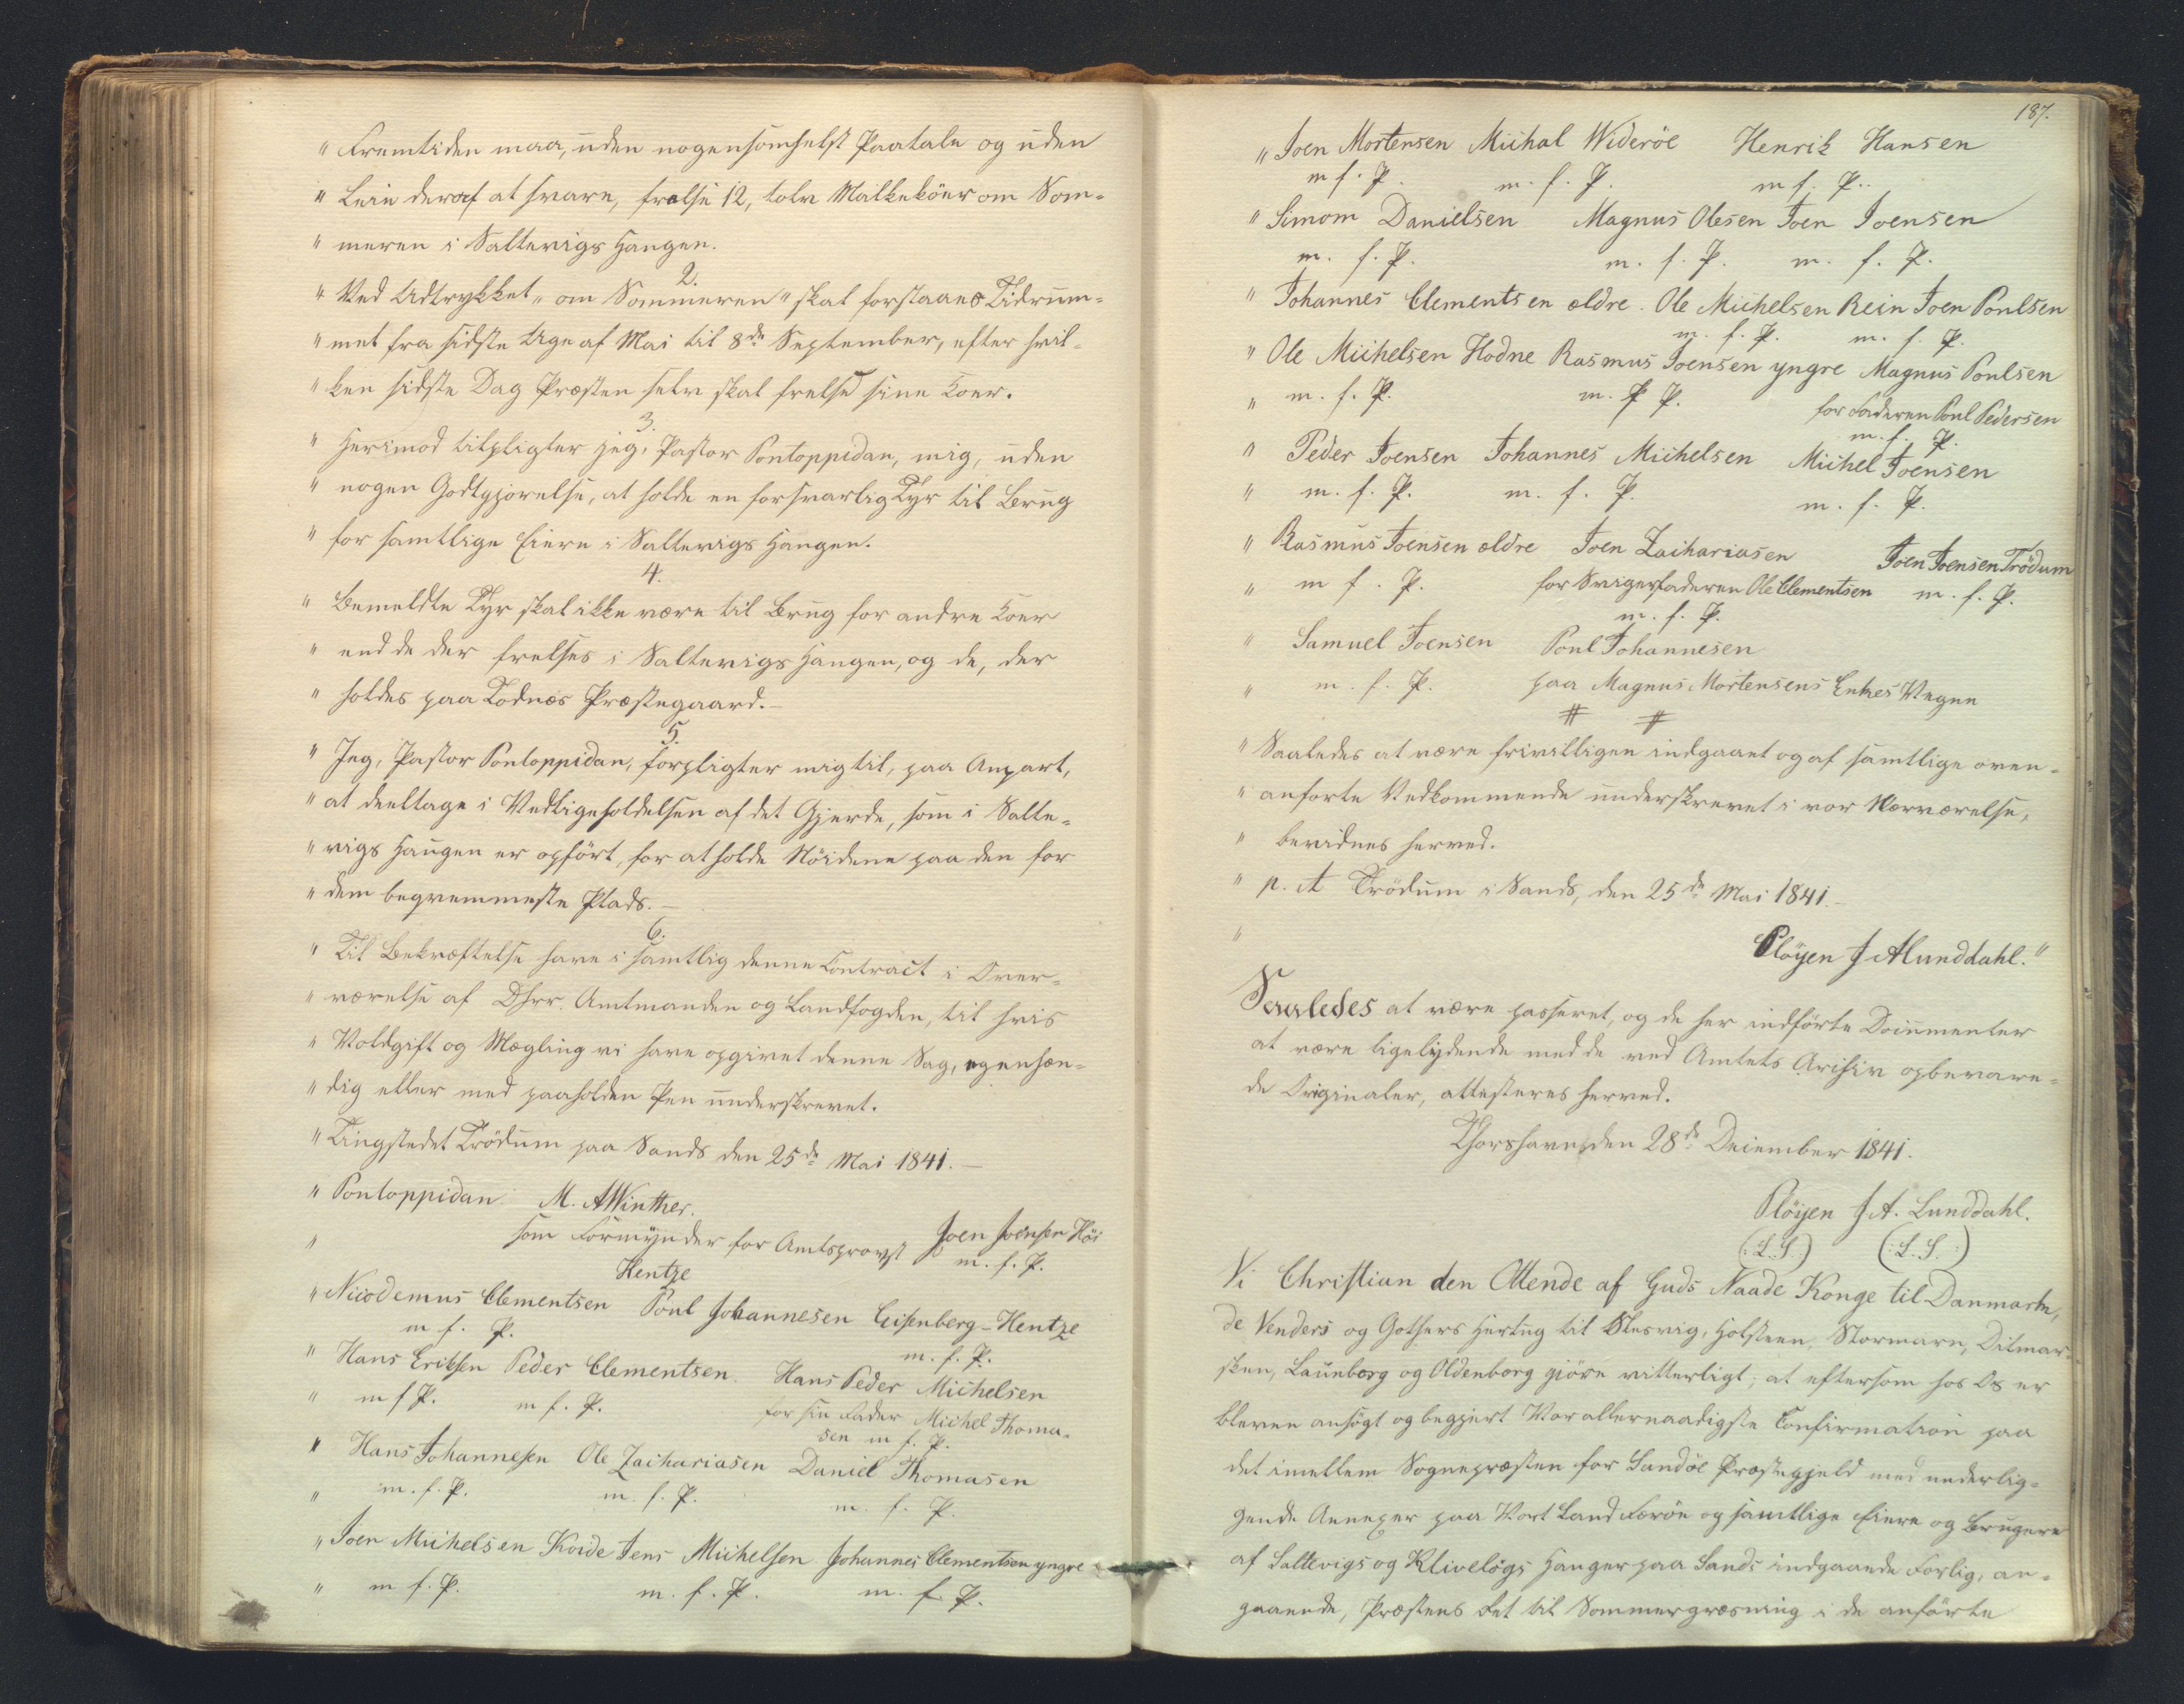 " Fremtiden maa, uden nogensomhelst Paatale og uden
" Leie deraf at svare, frelse 12, tolv Malkeköer om Som-
" meren i Saltevigs Haugen.
2.
" Ved Udtrykket "om Sommeren" skal forstaaes Tidrum-
" met fra sidste Uge af Mai til 8de September, efter hvil-
" ken sidste Dag Præsten selv skal frelse sine Koer.
3.
" Herimod tilpligter jeg, Pastor Pontoppidan, mig, uden
" nogen Godtgjorelse, at holde en forsvarlig Tyr til Brug
" for samtlige Eiere i Saltevigs Haugen.
4.
" Bemeldte Tyr skal ikke være til Brug for andre Koer
" end de der frelses i Saltevigs Haugen, og de, der
" holdes paa Todnæs Præstegaard.-
5.
" Jeg, Pastor Pontoppidan, forpligter mig til, paa Anpart,
" at deeltage i Vedligeholdelsen af det Gjerde, som i Salte-
" vigs Haugen er opfört, for at holde Nöidene paa den for
" dem beqvemmeste Plads.-
6.
" Til Bekræftelse have i samtlig denne Contract i Over-
" værelse af DHrr. Amtmanden og Landfogden, til hvis
" Voldgift og Mægling vi have opgivet denne Sag, egenhæn-
" dig eller med paaholden Pen underskrevet.
" Tingstedet Trödum paa Sands den 25de Mai 1841.-
" Pontoppidan. M. A Winther.
" som Formynder for Amtsprovst Joen Joensen Höi
Hentze m. f. P.
" Nicodemus Clementsen Poul Johannesen Eisenberg-Hentze
m f. P. m. f. P.
" Hans Eriksen Peder Clementsen. Hans Peder Michelsen
" m f P. m f. P. for sin Fader Michel Thoma-
sen m f. P.
" Hans Johannesen Ole Zachariasen Daniel Thomasen
" m. f. P. m. f. P. m. f. P.
" Joen Michelsen Koide Jens Michelsen Johannes Clementsen yngre
" m f. P. m. f. P. m. f. P.
187.
" Joen Mortensen Michal Wideröe Henrik Hansen
m f. P. m. f. P. m f. P..
" Simom Danielsen Magnus Olesen Joen Joensen
m. f. P. m. f. P. m. f. P.
" Johannes Clementsen ældre. Ole Michelsen Rein Joen Poulsen
m. f. P. m. f. P.
" Ole Michelsen Hodne Rasmus Joensen yngre Magnus Poulsen
" m. f. P. m. f P. for Faderen Poul Pedersen
m. f. P.
" Peder Joensen Johannes Michelsen Michel Joensen
" m. f. P. m. f. P. m. f. P.
" Rasmus Joensen ældre Joen Zachariasen Joen Joensen Trödum
" m f. P. for Svigerfaderen Ole Clementsen m. f. P.
m. f. P.
" Samuel Joensen Poul Johannesen
" m. f. P. paa Magnus Mortensens Enkes Vegne
# #
" Saaledes at være frivilligen indgaaet og af samtlige oven-
" anforte Vedkommende underskrevet i vor Nærværelse,
" bevidnes herved.
" p. t Trödum i Sands, den 25de Mai 1841.-
" Plöyen J A Lunddahl."
Saaledes at være passeret, og de her indförte Documenter
at være ligelydende med de ved Amtets Archiv opbevare-
de Originaler, attesteres herved.
Thorshavn, den 28de December 1841.
Plöyen J. A. Lunddahl.
(:L.S:) (:L.S.:)
Vi Christian den Ottende af Guds Naade Konge til Danmark,
de Venders og Gothers Hertug til Slesvig, Holsteen, Stormarn, Ditmar-
sken, Lauenborg og Oldenborg giöre vitterligt; at eftersom hos Os er
bleven ansögt og begjert Vor allernaadigste Confirmation paa
det imellem Sognepræsten for Sandöe Præstegjeld med underlig-
gende Annexer paa Vort Land Færöe og samtlige Eiere og Brugere
af Saltevigs og Klivelögs Hauger paa Sands indgaaende Forlig, an-
gaaende, Præstens Ret til Sommergræsning i de anförte